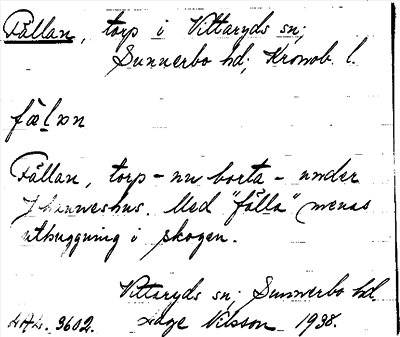 Fållan, torp i Vittaryds sn;
Sunnerbo hd; Kronob. l.
fælɔn
Fållan, torp - nu borta - under
Johanneshus. Med "fålla" menas
uthuggning i skogen.
Vittaryds sn; Sunnerbo hd.
LAL. 3602. Tage Nilsson 1938.